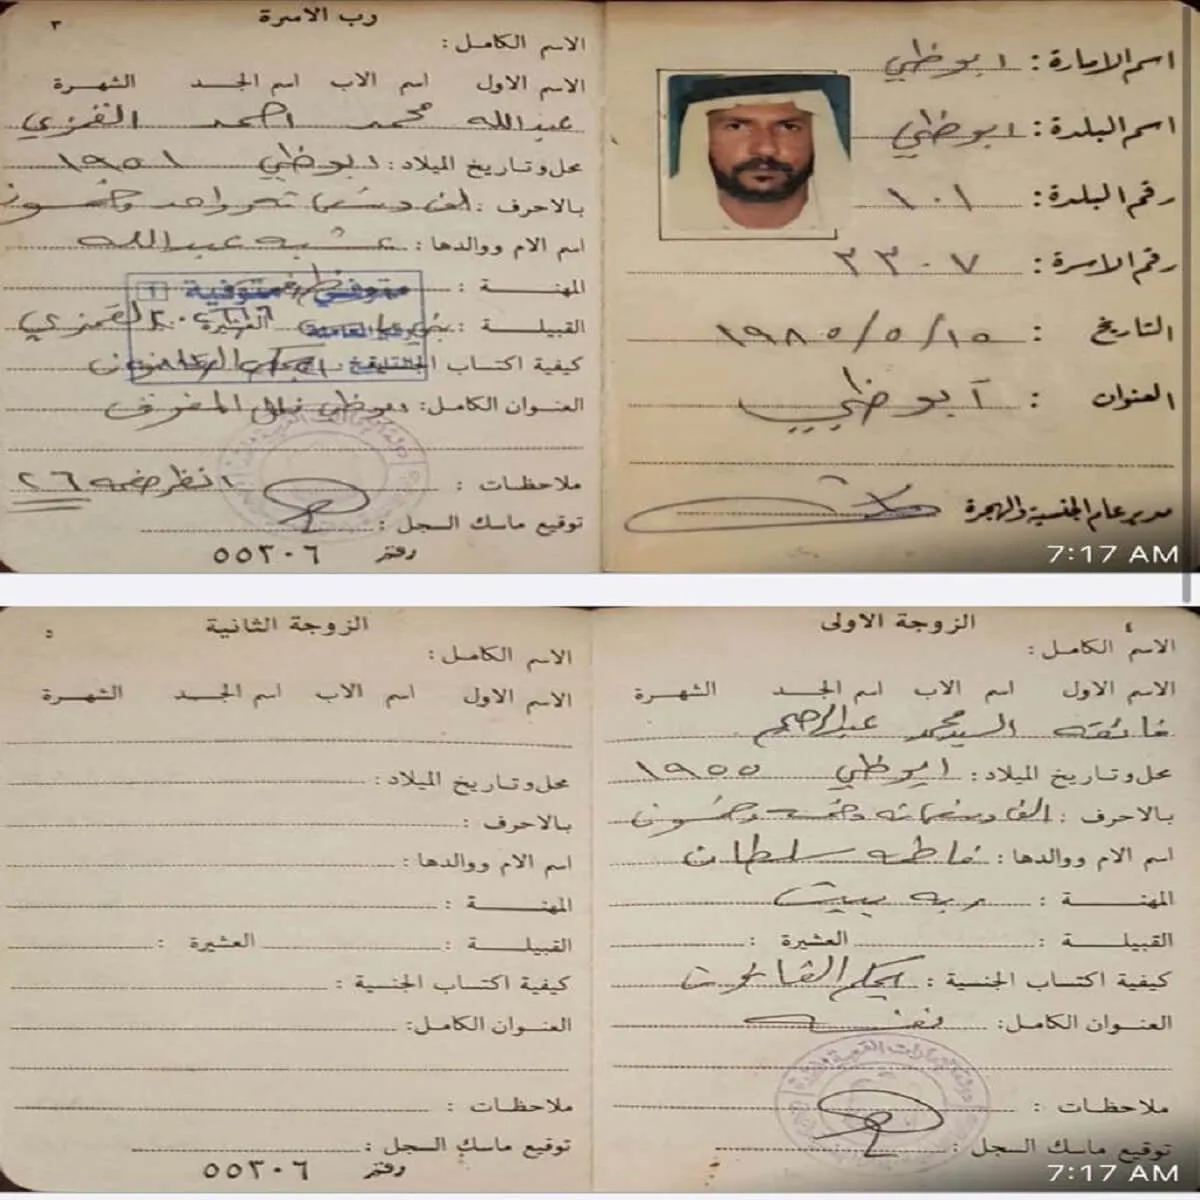 اسم الامارة : ابوظبي
اسم البلدة : ابوظبي
رقم البلدة : ١٠١
رقم الاسرة : ٣٣٠٧
التاريخ : ١٩٨٥/٥/١٥
العنوان : ابوظبي
مدير عام الجنسية والهجرة
7:17 AM
٣
رب الاسرة
الاسم الكامل :
الاسم الاول اسم الاب اسم الجد الشهرة
عبدالله محمد احمد القمزي
محل وتاريخ الميلاد : ابوظبي ١٩٥١
بالاحرف : الف وتسعمائة واحد وخمسون
اسم الام ووالدها : عبدالله
المهنة :
متوفى / متوفية
القبيلة : العشيرة القمزي
كيفية اكتساب الجنسية : بحكم القانون
العنوان الكامل : ابوظبي
ملاحظات : انظر صفحه ٢٦
توقيع ماسك السجل :
رقم ٥٥٢٠٦
٤
الزوجة الاولى
الاسم الكامل :
الاسم الاول اسم الاب اسم الجد الشهرة
فائقه السيد محمد عبدالرحيم
محل وتاريخ الميلاد : ابوظبي ١٩٥٥
بالاحرف : الف وتسعمائه وخمسه وخمسون
اسم الام ووالدها : فاطمه سلطان
المهنة : ربه بيت
القبيلة : العشيرة :
كيفية اكتساب الجنسية : بحكم القانون
العنوان الكامل : نفسه
دولة الامارات العربية المتحدة
ملاحظات :
توقيع ماسك السجل :
7:17 AM
٥
الزوجة الثانية
الاسم الكامل :
الاسم الاول اسم الاب اسم الجد الشهرة
محل وتاريخ الميلاد :
بالاحرف :
اسم الام ووالدها :
المهنة :
القبيلة : العشيرة :
كيفية اكتساب الجنسية :
العنوان الكامل :
ملاحظات :
توقيع ماسك السجل :
رقم ٥٥٢٠٦